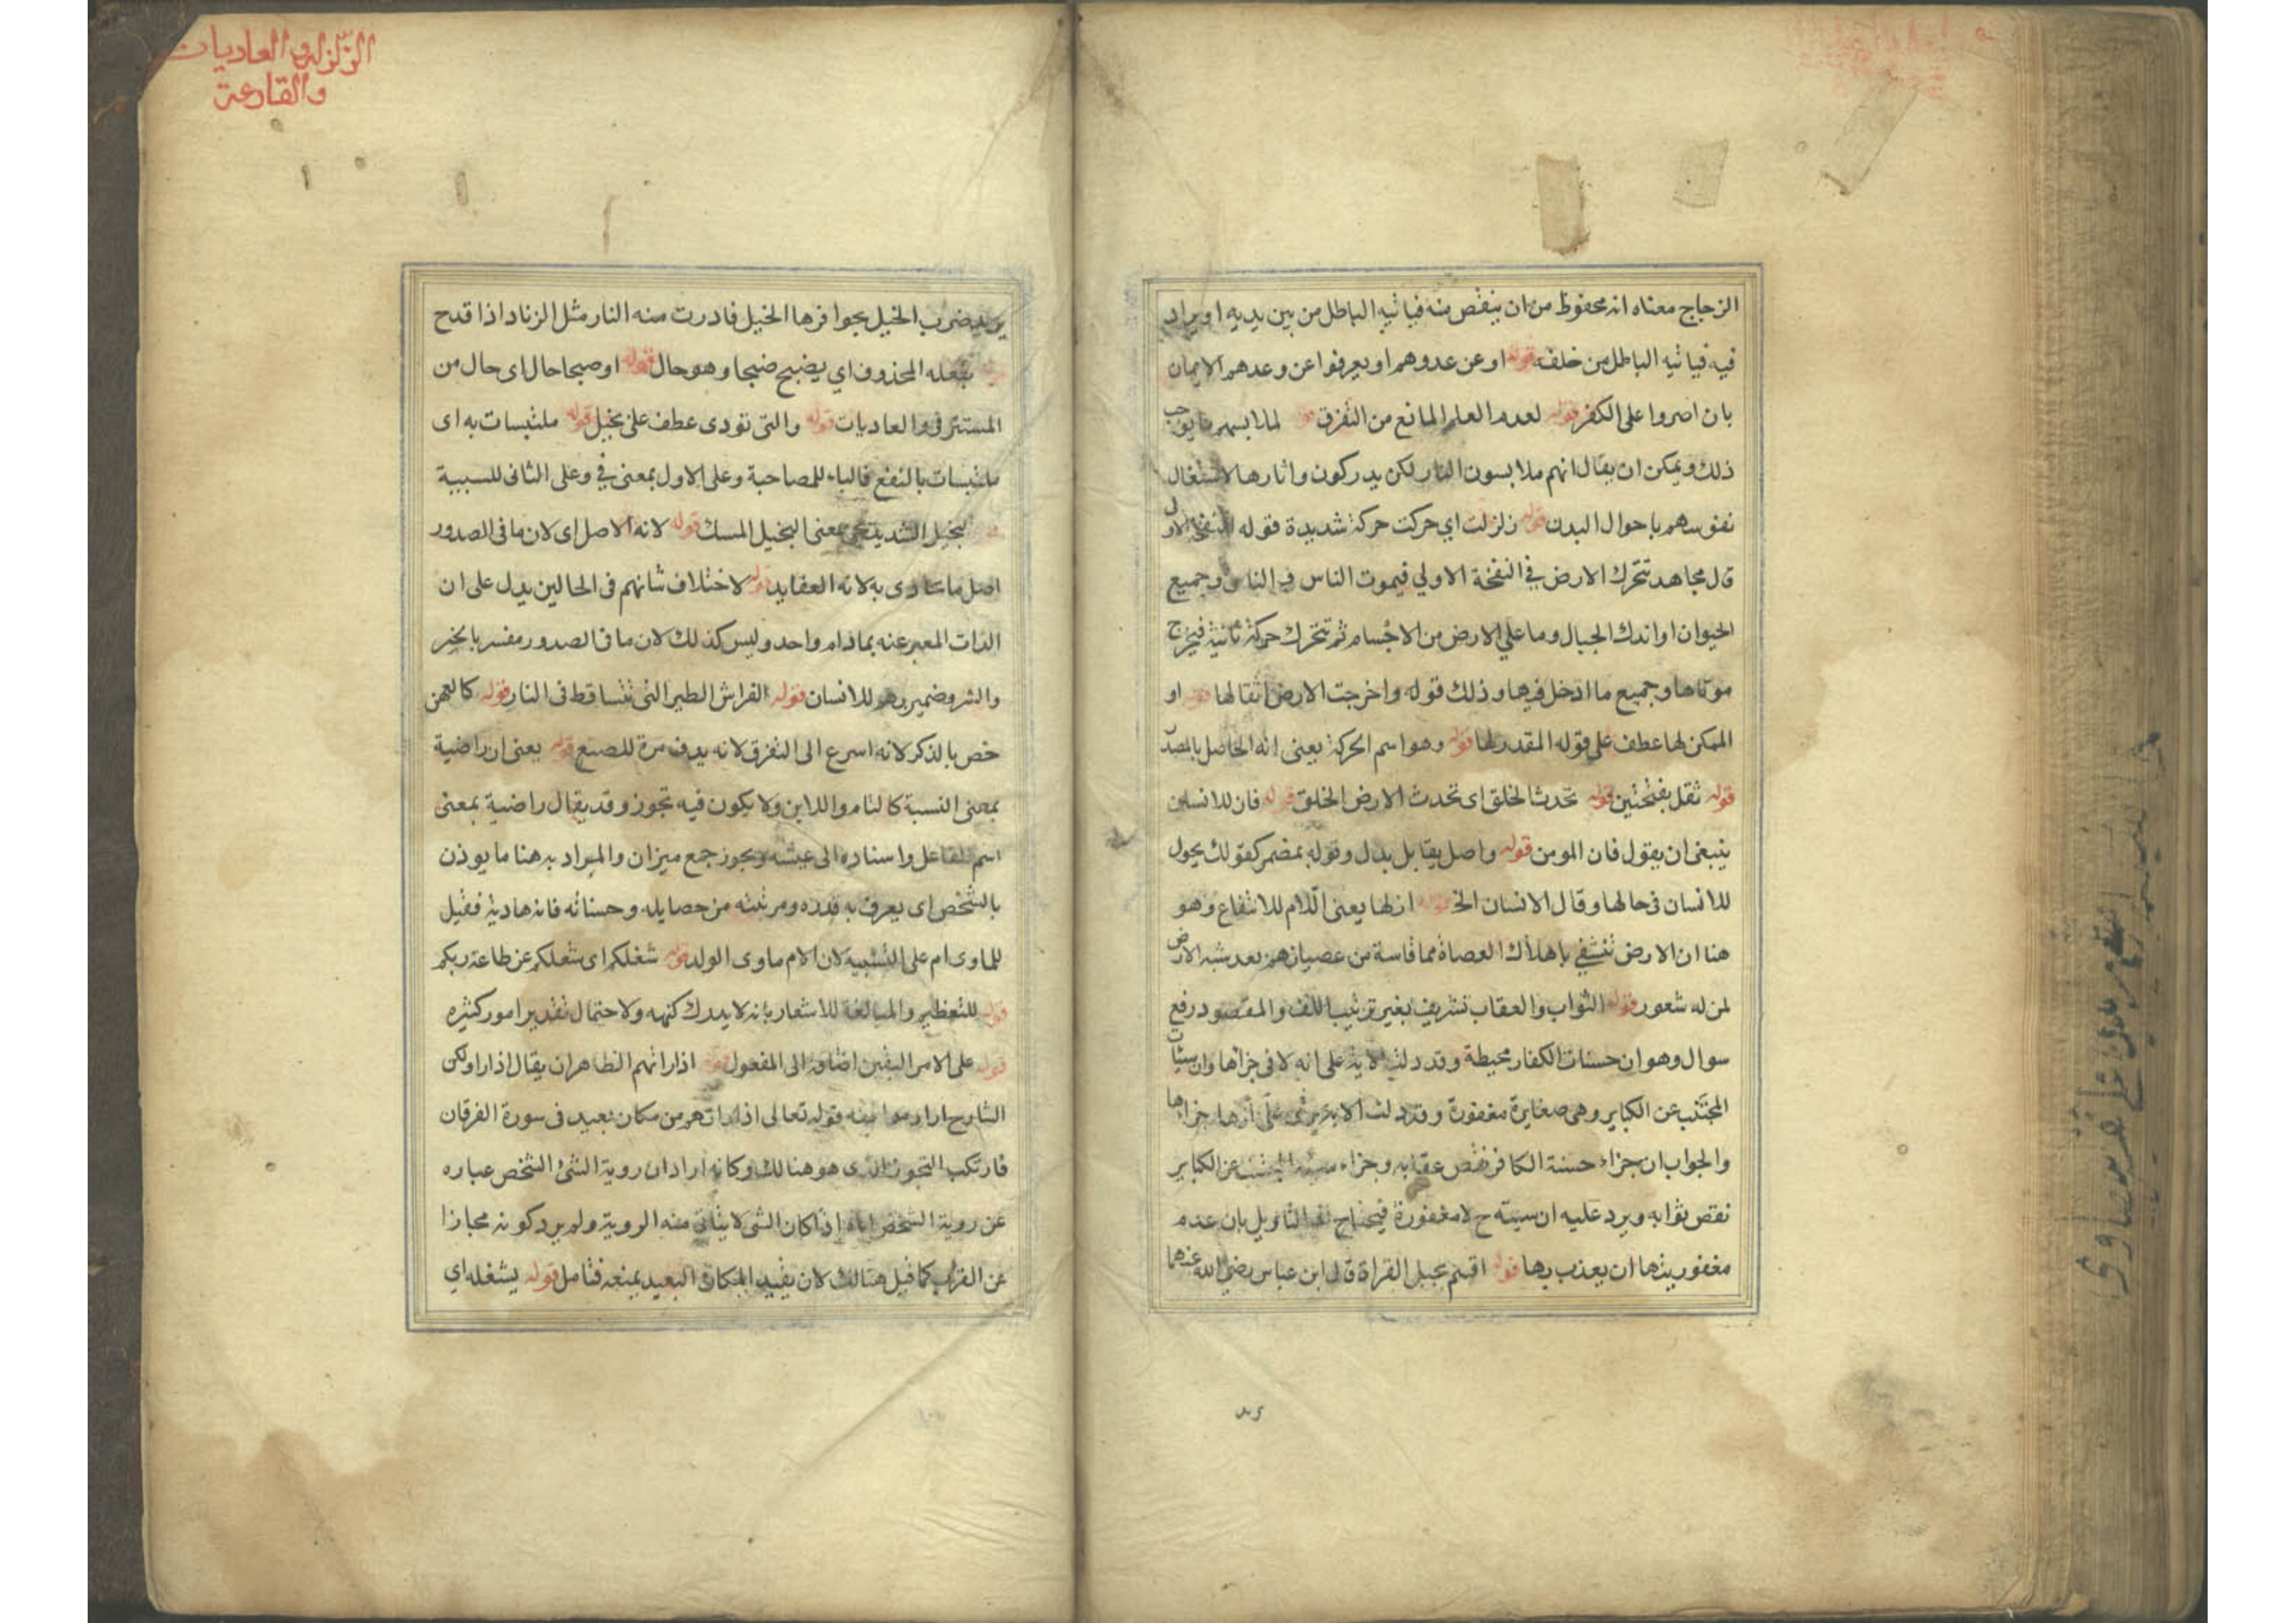 الزجاج معناه انه محفوظ من ان ينقص منه فياتيه الباطل من بين يديه او يراد
فيه فياتيه الباطل من خلفه قوله او عن عدوهم او يعرفوا عن وعدهم الايمان
بان اصروا على الكفر قوله لعدم العلم المانع من التفرق لملابسهم ما يوجب
ذلك ويمكن ان يقال انهم ملابسون النار لكن يدركون واثارها لاشتغال
نفوسهم باحوال البدن قوله زلزلت اي حركت حركة شديدة قوله النفخة الاولى
قال مجاهد تتحرك الارض في النفخة الاولي فيموت الناس وجميع
الحيوان او اندك الجبال وما علي الارض من الاجسام ثم تتحرك حركة ثانية فيخرج
موتاها وجميع ما ادخل فيها وذلك قوله واخرجت الارض اثقالها قوله او
الممكن لها عطف على قوله المقدر لها قوله وهو اسم الحركة يعنى انه الحاصل بالمصدر
قوله ثقل بفتحتين قوله تحدث الخلق اى تحدث الارض الخلق قوله فان للانسان
ينبغى ان يقول فان المومن قوله واصل يقابل بدل وقوله بمضمر كقولك يحول
للانسان فى حالها وقال الانسان الخ قوله ازلها يعنى اللام للانتفاع وهو
هنا ان الارض تتشفي باهلاك العصاة مما قاسة من عصيانهم بعد شبه الارض
لمن له شعور قوله الثواب والعقاب بغير ترتيب اللف والمقصود رفع
سوال وهو ان حسنات الكفار محبطة وقد دلت الاية على انه لا فى جزاها وان سيئات
المجتنب عن الكباير وهى صغايرة مغفورة وقد دلت الاية على انها جزاءها
والجواب ان جزاء حسنة الكافر نقص عقابه وجزاء سيئة المجتنب عن الكباير
نقص ثوابه ويرد عليه ان سيئة ح لا مغفورة فيحتاج الى التاويل بان عدم
مغفوريتها ان يعذب بها قوله اقسم بخيل الغزاة قال ابن عباس رضي الله عنهما
الزلزلة والعاديات
والقارعة
يريد يضرب الخيل بحوافرها الخيل فادرت منه النار مثل الزناد اذا قدح
بفعله المحذوف اي يضبح ضبحا وهو حال قوله او صبحا حال اى حال من
المستتر فى والعاديات قوله والتى تودى عطف على بخيل قوله ملتبسات به اى
ملتبسات بالنقع فالباء للمصاحبة وعلى الاول بمعنى في وعلى الثانى للسببية
لبخيل الشديد بمعنى البخيل المسك قوله لانه الاصل اى لان ما فى الصدور
اصل ما به لانه العقايد قوله لاختلاف شانهم فى الحالين يدل على ان
الذات المعبر عنه بماذام واحد وليس كذلك لان ما فى الصدور مفسر بالخير
والشر وضمير بهم للانسان قوله الفراش الطير التى تتساقط فى النار قوله كالعهن
خص بالذكر لانه اسرع الى التفرق لانه يدف مرة للصبغ قوله يعنى ان راضية
بمعنى النسبة كالتامر واللابن ولا يكون فيه تجوز وقد يقال راضية بمعنى
اسم الفاعل واسناده الى عيشه ويجوز جمع ميزان والمراد به هنا ما يوذن
بالشخص اى يعرف به قدره ومرتبته من خصايله وحسناته فانه هادية فقيل
للماوى ام على التشبيه لان الام ماوى الولد قوله شغلكم اى شغلكم عن طاعة ربكم
قوله للتعظيم والمبالغة للاشعار بانه لا يدرك كنهه ولاحتمال تقدير امور كثيره
قوله على الامر اليقين اضافة الى المفعول قوله اذا راتهم الظاهر ان يقال اذا راو لكن
الشارح اراد موافقته قوله تعالى اذا راتهم من مكان بعيد فى سورة الفرقان
فارتكب التجوز الذى هو هنالك وكانه اراد ان روية الشئ الشخص عباره
عن روية الشخص اياه اذا كان الشى لا يتاتى منه الروية ولم يرد كونه مجازا
عن القرب كما قيل هنالك لان يقيد المكان البعيد يمنعه فتامل قوله يشغله اي